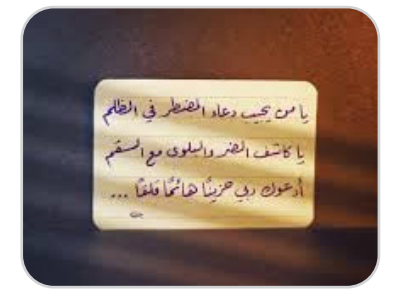 يا من يجيب دعاء المضطر في الظلم
يا كاشف الضر والبلوى مع السقم
أدعوك ربي حزينًا هائمًا قلقًا ...